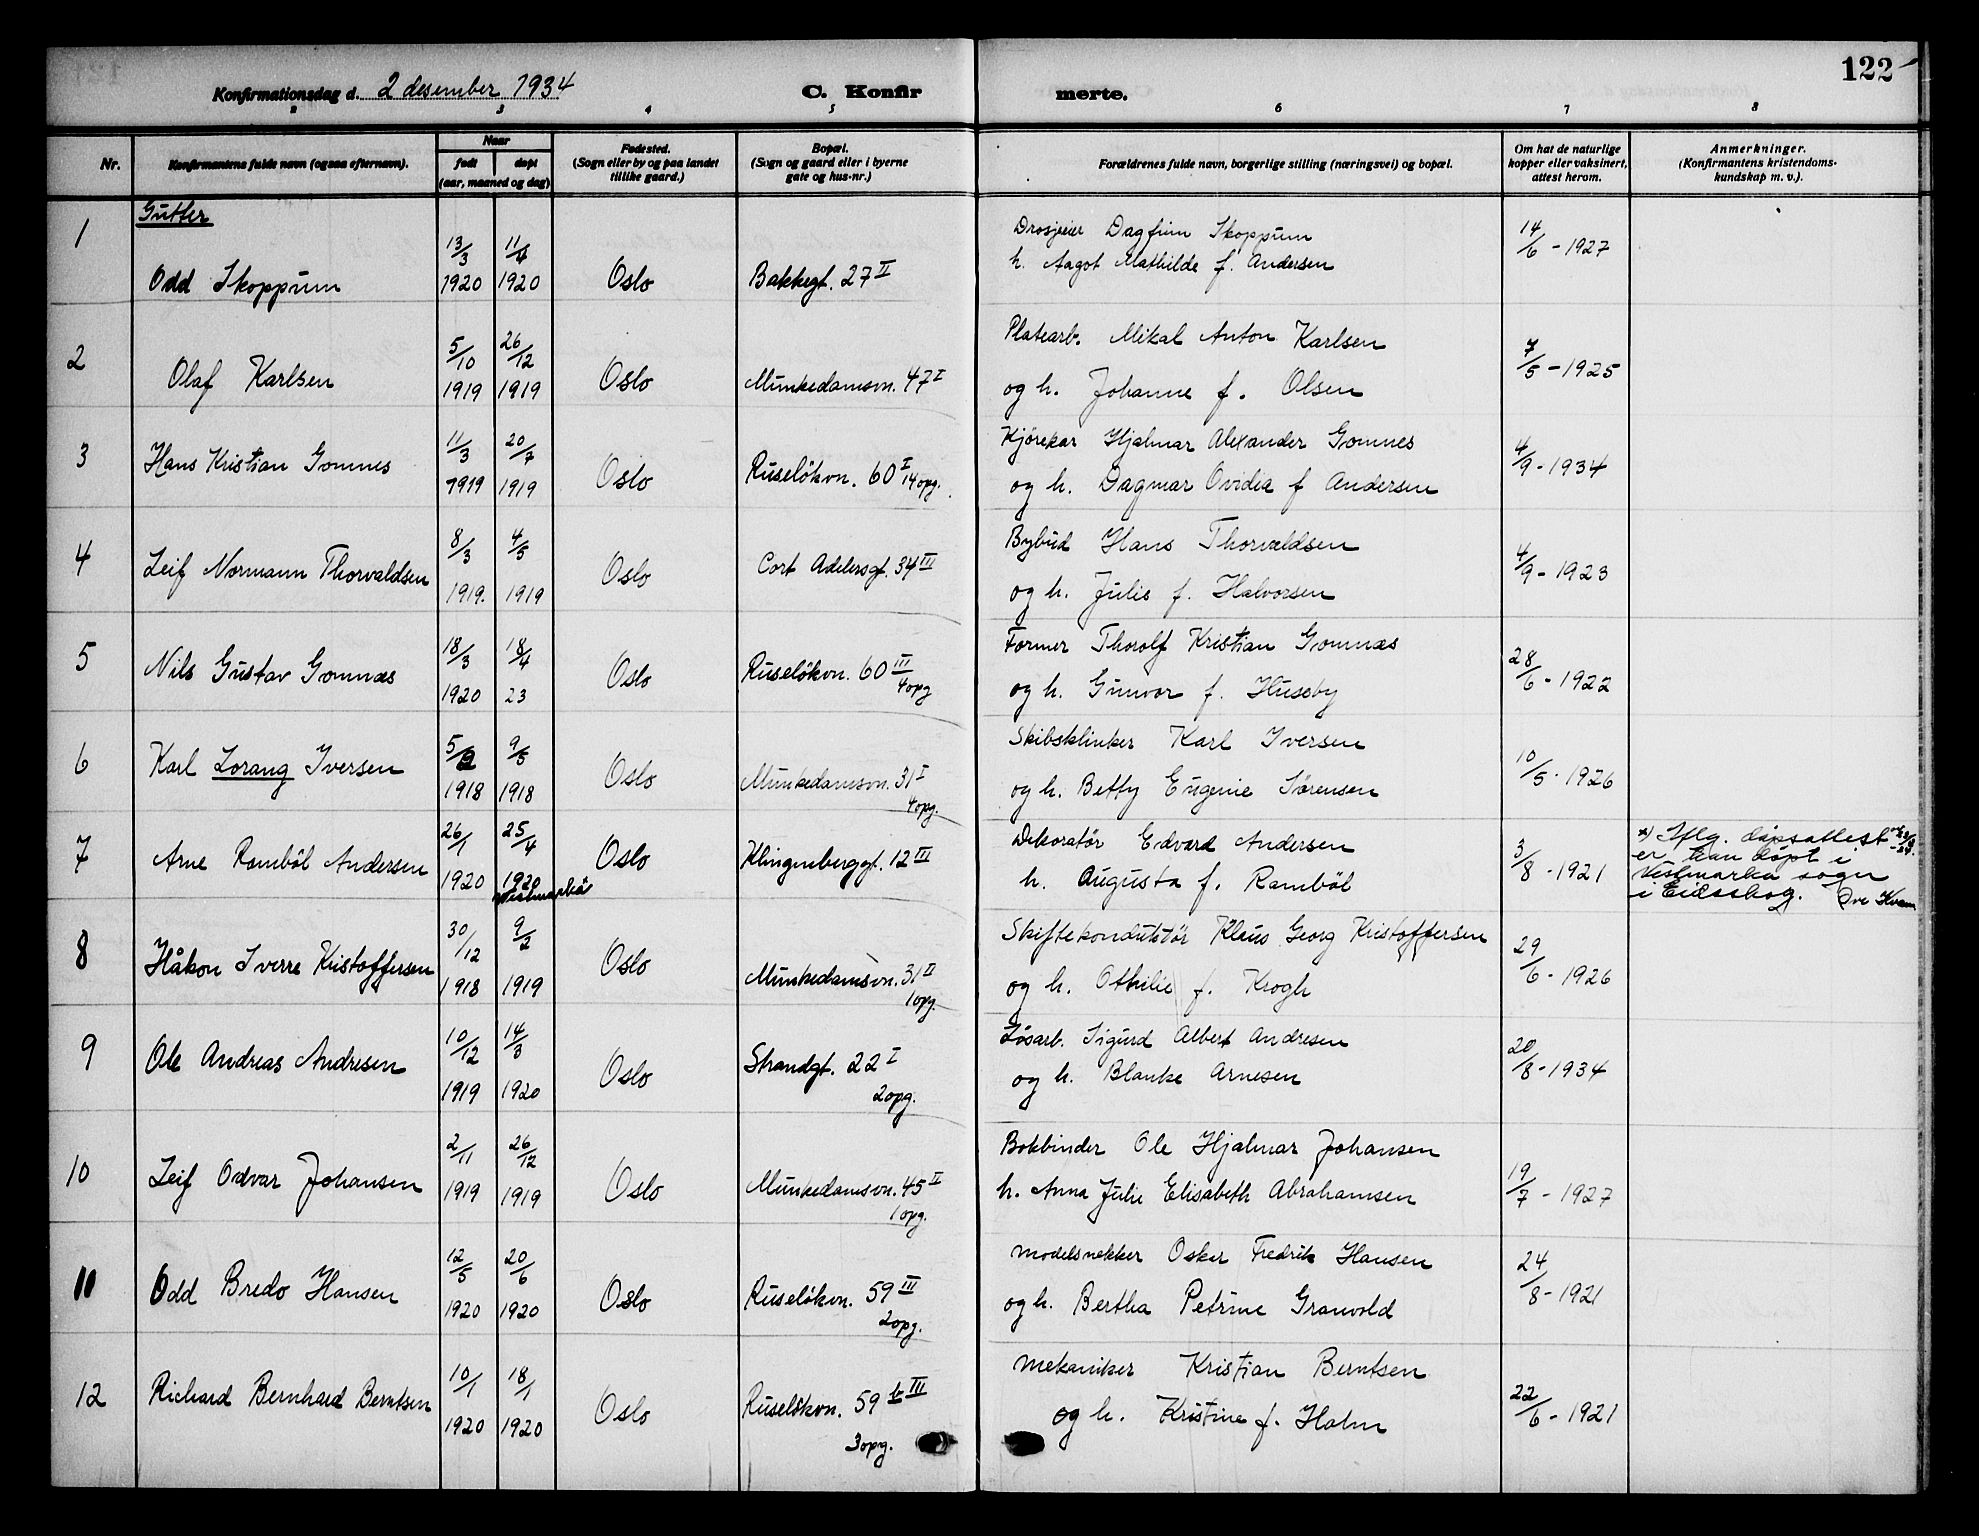 122
Konfirmationsdag d. 2 desember 1934
C. Konfir
merte.
2 3 4 5 6 7 8
Nr.
Konfirmantens fulde navn (ogsaa efternavn).
Naar
født
døpt
(aar, maaned og dag)
Fødested.
(Sogn eller by og paa landet
tillike gaard.)
Bopæl.
(Sogn og gaard eller i byerne
gate og hus-nr.)
Forældrenes fulde navn, borgerlige stilling (næringsvei) og bopæl.
Om hat de naturlige
kopper eller vaksinert,
attest herom.
Anmerkninger.
(Konfirmantens kristendoms-
kundskap m. v.).
Gutter
1
13/3 11/4
Drosjeeier Dagfinn Skoppum
14/6 - 1927
Odd Skoppum 1920 1920 Oslo Bakkegt. 27 II
h. Aagot Mathilde f. Andersen
2
5/10 26/12
Platearb. Mikal Anton Karlsen
7/5 - 1925
Olaf Karlsen 1919 1919 Oslo Munkedamsvn. 47 I
og h. Johanne f. Olsen
3
11/3 20/7
Kjørekar Hjalmar Alexander Gomnes
4/9 - 1934
Hans Kristian Gomnes 1919 1919 Oslo Ruseløkvn. 60 I
14 opg.
og h. Dagmar Ovidia f Andersen
4
8/3 4/5
Bybud Hans Thorvaldsen
4/9 - 1923
Leif Normann Thorvaldsen 1919. 1919 Oslo Cort Adelersgt. 34 III
og h. Julie f. Halvorsen
5
18/3 18/4
Former Thorolf Kristian Gomnæs
28/6 - 1922
Nils Gustav Gomnæs 1920 23 Oslo Ruseløkvn. 60 III
4 opg
og h. Gunvor f. Huseby
6
5/2 9/5
Skibsklinker Karl Iversen
10/5 - 1926
Karl Lorang Iversen 1918 1918 Oslo Munkedamsvn. 31 I
4 opg.
og h. Betty Eugenie Sørensen
7
26/1 25/4
Dekoratør Edvard Andersen
3/8 - 1921
Arne Rambøl Andersen 1920 1920 Oslo Klingenberggt. 12 III
Vestmarka
h. Augusta f. Rambøl
x) Iflg. dåpsattest
er han døpt i
Vestmarka sogn
i Eidsskog. Ove Kvam
8
30/12 9/2
Skiftekonduktør Klaus Georg Kristoffersen
29/6 - 1926
Håkon Sverre Kristoffersen 1918 1919 Oslo Munkedamsvn. 31 II
1 opg.
og h. Othilie f. Krogh
9
10/12 14/3
Løsarb. Sigurd Albert Andresen
20/8 - 1934
Ole Andreas Andresen 1919 1920 Oslo Strandgt. 22 I
2 opg.
og h. Blanke Arnesen
10
2/11 26/12
Bokbinder Ole Hjalmar Johansen
19/7 - 1927
Leif Odvar Johansen 1919 1919 Oslo Munkedamsvn. 45 II
1 opg.
h. Anna Julie Elisabeth Abrahamsen
11
12/5 20/6
Modelsnekker Oskar Fredrik Hansen
24/8 - 1921
Odd Bredo Hansen 1920 1920 Oslo Ruseløkvn. 59 III
2 opg.
og h. Bertha Petrine Granvold
12
10/1 18/1
Mekaniker Kristian Berntsen
22/6 - 1921
Richard Bernhard Berntsen 1920 1920 Oslo Ruseløkvn. 59 b III
3 opg.
og h. Kristine f. Holm